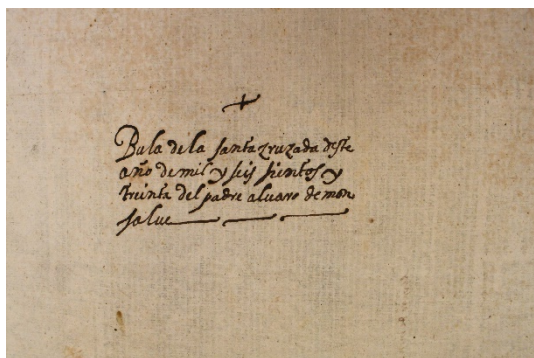 +
Bula de la santa cruzada deste
año de mil y seis sientos y
treinta del padre alvaro de mon
salue